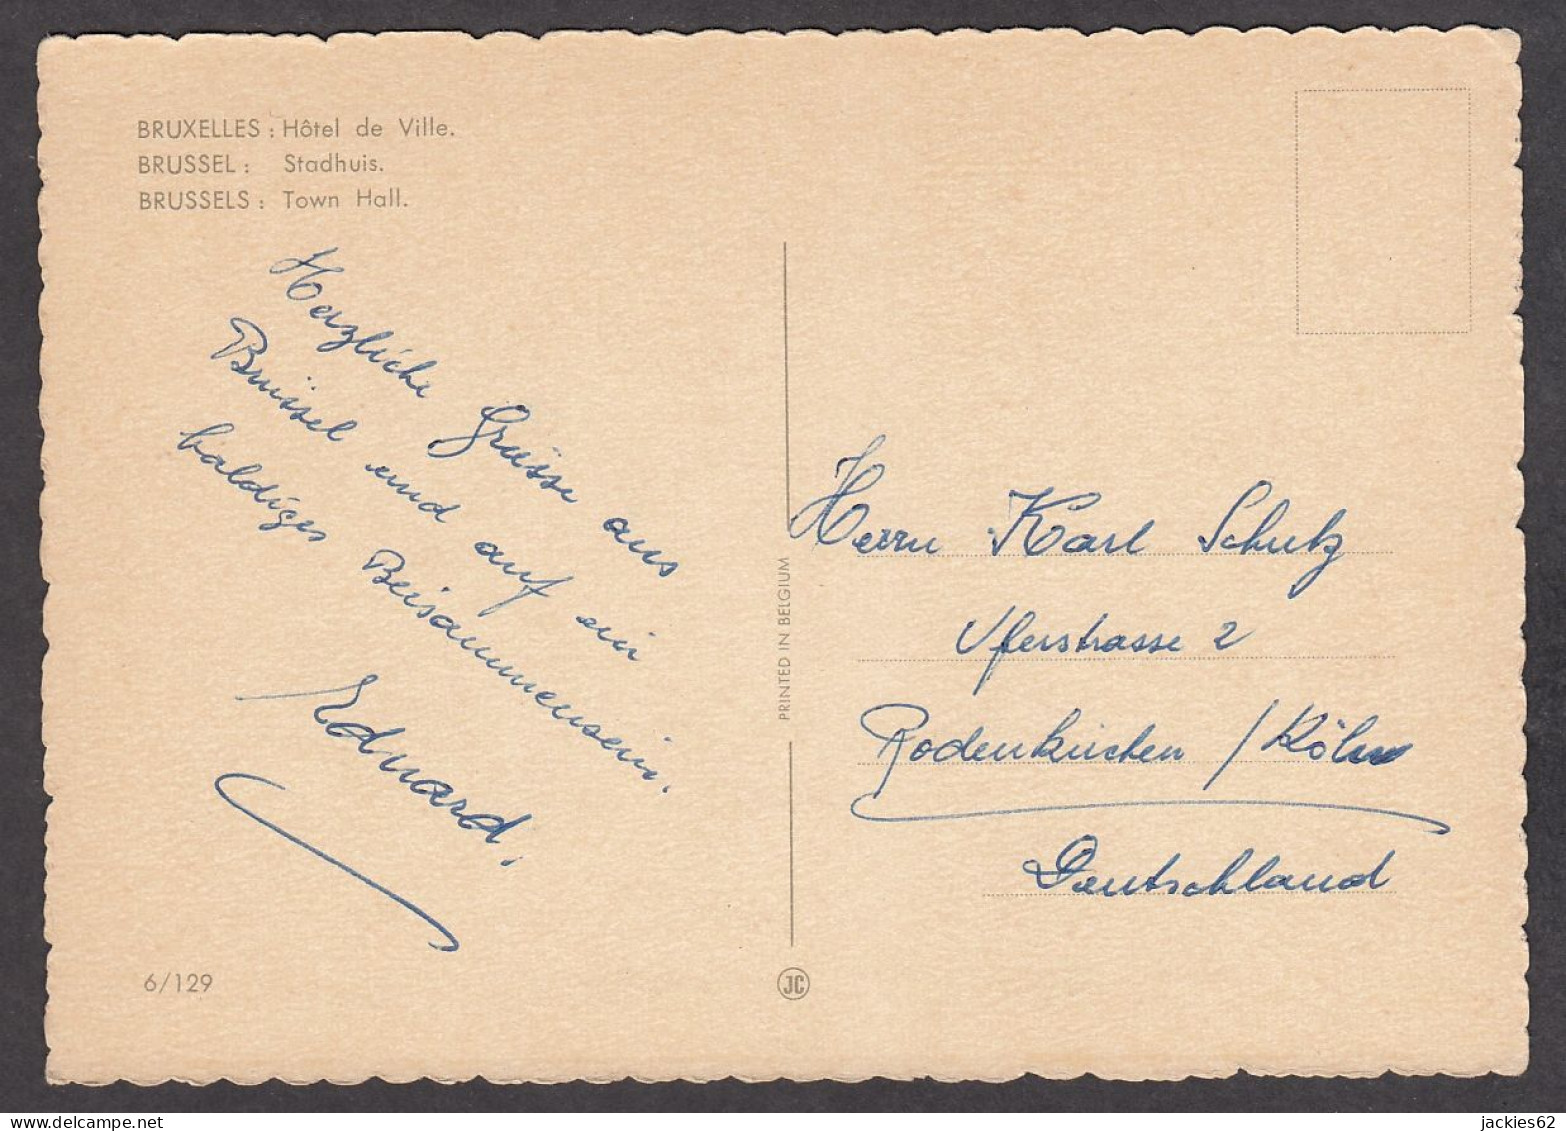 BRUXELLES : Hôtel de Ville.
BRUSSEL : Stadhuis.
BRUSSELS : Town Hall.
Herzliche Grüsse aus
Brüssel und auf ein
baldiges Beisammensein.
Eduard.
6/129
PRINTED IN BELGIUM
JC
Herrn Karl Schulz
Uferstrasse 2
Rodenkirchen / Köln
Deutschland
www.delcampe.net
jackies62